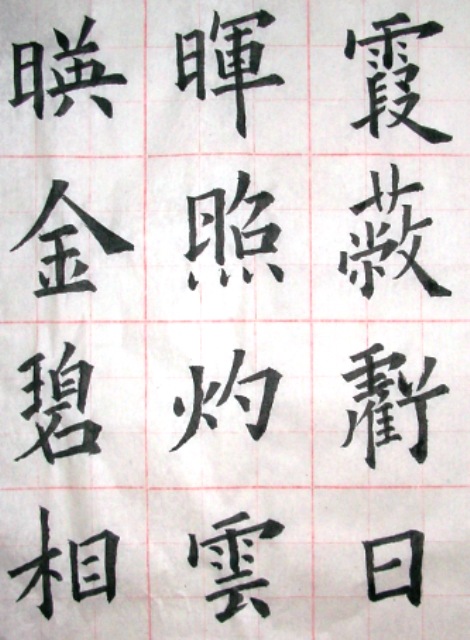 暎金碧相
暉照灼雲
霞蔽虧日